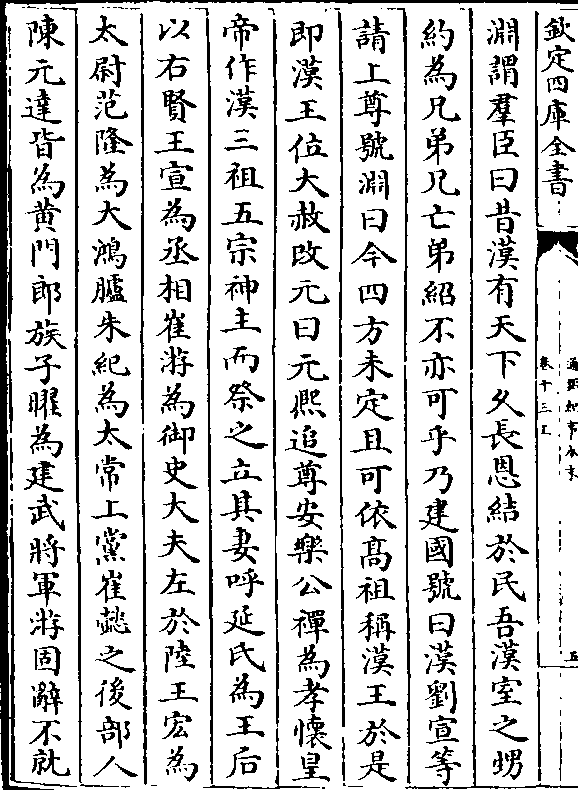 欽定四庫全書
通鑑紀事本末
卷十三上
五
淵謂羣臣曰昔漢有天下久長恩結於民吾漢室之甥
約為兄弟兄亡弟紹不亦可乎乃建國號曰漢劉宣等
請上尊號淵曰今四方未定且可依高祖稱漢王於是
即漢王位大赦改元曰元熙追尊安樂公禪為孝懷皇
帝作漢三祖五宗神主而祭之立其妻呼延氏為王后
以右賢王宣為丞相崔游為御史大夫左於陸王宏為
太尉范隆為大鴻臚朱紀為太常上黨崔懿之後部人
陳元達皆為黄門郎族子曜為建武將軍游固辭不就